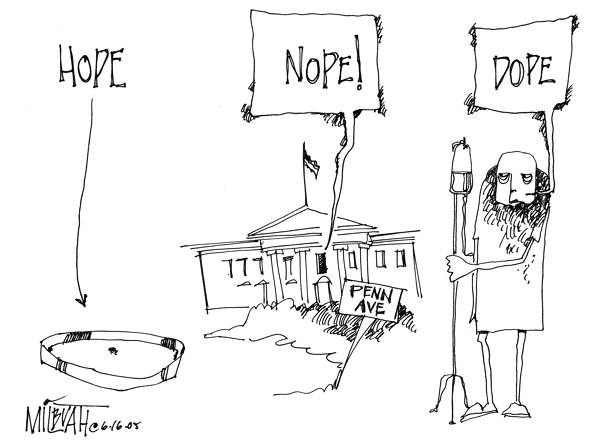 HOPE
NOPE!
DOPE
PENN
AVE
©6.16.05